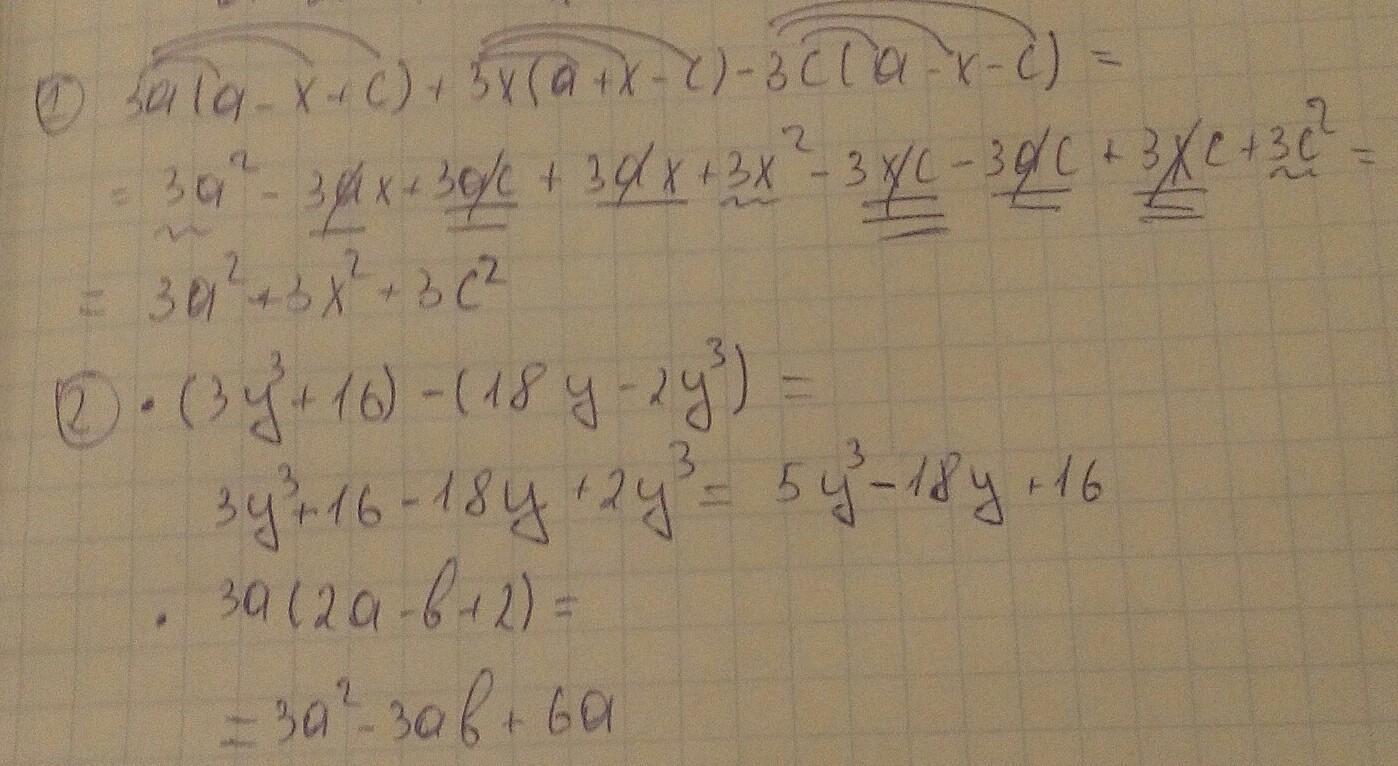 ① 3a(a - x + c) + 3x(a + x - c) - 3c(a - x - c) =
= 3a² - 3ax + 3ac + 3ax + 3x² - 3xc - 3ac + 3xc + 3c² =
= 3a² + 3x² + 3c²
② • (3y³ + 16) - (18y - 2y³) =
3y³ + 16 - 18y + 2y³ = 5y³ - 18y + 16
• 3a(2a - b + 2) =
= 3a² - 3ab + 6a